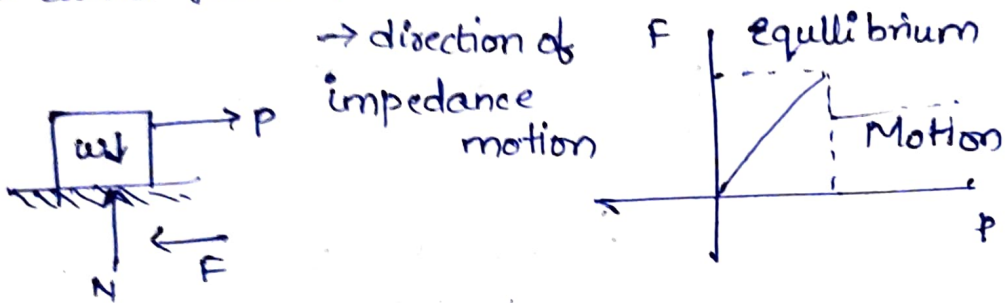 → direction of
impedance
motion
F
equllibrium
Motion
P
P
w↓
F
N